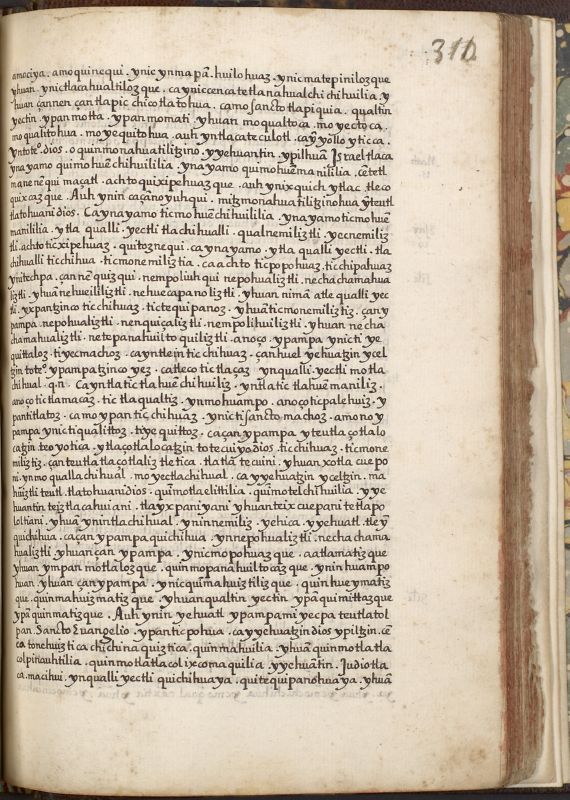 310
amociya . amo quinequi . ynic ynma pā . huilohuaz . ynic matepinilozque
yhuan ynic tlacahualtilozque . ca yniccenca tetlanahualchichihuilia . y
huan çannen çan tlapic chicotlatohua . camo sancto tlapiquia . qualtin
yectin ypan motta . ypan momati . yhuan moqualtoca . moyectoca .
moqualitohua . moyequitohua . auh yn tlacatecolotl . ca yyollo yticca .
yn toteº dios . oquin monahuatilitzino . yyehuantin . ypilhuā Israel tlaca
ynayamo quimohuē chihuililia . ynayamo quimohuēmanililia . cētetl
manenēqui maçatl . achto quixipehuazque . auh ynixquich ytlac . tleco
quixcazque . Auh ynin caçāno yuhqui . mitzmonahuatilitzinohua yteutl
tlatohuani dios . Ca ynayamo ticmohuēchihuililia . ynayamo ticmohuē
manililia . ytla qualli . yectli tlachihualli . qualnemiliztli . yecnemiliz
tli . achto ticxipehuaz . quitoznequi . ca ynayamo . ytla qualli yectli . tla
chihualli ticchihua . ticmonemiliztia . ca achto ticpopohuaz . ticchipahuaz
ynitechpa . çannē quizqui . nempoliuhqui nepohualiztli . nechachamahua
liztli . yhuā nehueililiztli . nehuecapanoliztli . yhuan nimā atle qualli yec
tli . yxpantzinco ticchihuaz . tictequipanoz . yhuā ticmonemiliztiz . çan y
pampa . nepohualiztli . nenquiçaliztli . nempolihuiliztli . yhuan necha
chamahualiztli . netepanahuiltoquiliztli . anoço . ypampa ynicti ye
quittaloz . tiyecmachoz . ca yntlein ticchihuaz . çan huel yehuatzin ycel
tzin toteº ypampatzinco yez . catleco tictlaçaz ynqualli . yectli motla
chihual . q.n. Ca yntla tictlahuē chihuiliz . yntla tictlahuēmaniliz .
anoço tictlamacaz . tictlaqualtiz . ynmohuampo . anoço ticpalehuiz . y
pantitlatoz . camo ypan tic chihuaz . ynicti sancto machoz . amo no y
pampa ynictiqualittoz . tiyequittoz . ca çan ypampa yteutlaçotlalo
catzin . teoyotica . ytlaçotlalocatzin totecuiyo dios . ticchihuaz . ticmone
miliztiz . çan teutlatlaçotlaliztletica . tlatlā tecuini . yhuan xotla cuepo
ni . ynmoqualla chihual . moyectlachihual . ca yyehuatzin ycelitzin . ma
huiztli teutl . tlatohuani dios . quimotlelittilia . quimotelchihuilia . yye
huantin teiztlacahuiani . tlayxpaniyani yhuan teixcuepani tetlapo
loltiani . yhuā ynintlachihual . ynin nemiliz . yehica . yyehuatl . tleȳ
quichihua . ca çan ypampa quichihua . ynnepohualiztli . nechachama
hualiztli . yhuan çan ypampa . ynicmopohuazque . aatlamatizque
yhuan ympan mottalozque . quin mopanahuiltocazque . yninhuampo
huan . yhuan çan ypampa . ynicquimahuiztilizque . quin hueymatiz
que . quinmahuizmatizque . yhuan qualtin yectin ypā quimittazque
ypā quinmatizque . Auh ynin yehuatl ypampa miyecpa teutlatol
pan . Sancto Euangelio . ypan ticpohua . ca yyehuatzin dios ypiltzin . cē
ca tonehuiztica chichinaquiztica . quin mahuilia . yhuā quinmotlatla
colpinauhtilia . quinmotlatlacolixcomaquilia . yyehuantin . Judiotla
ca . macihui . ynqualli yectli quichihuaya . quitequipanohuaya . yhuā